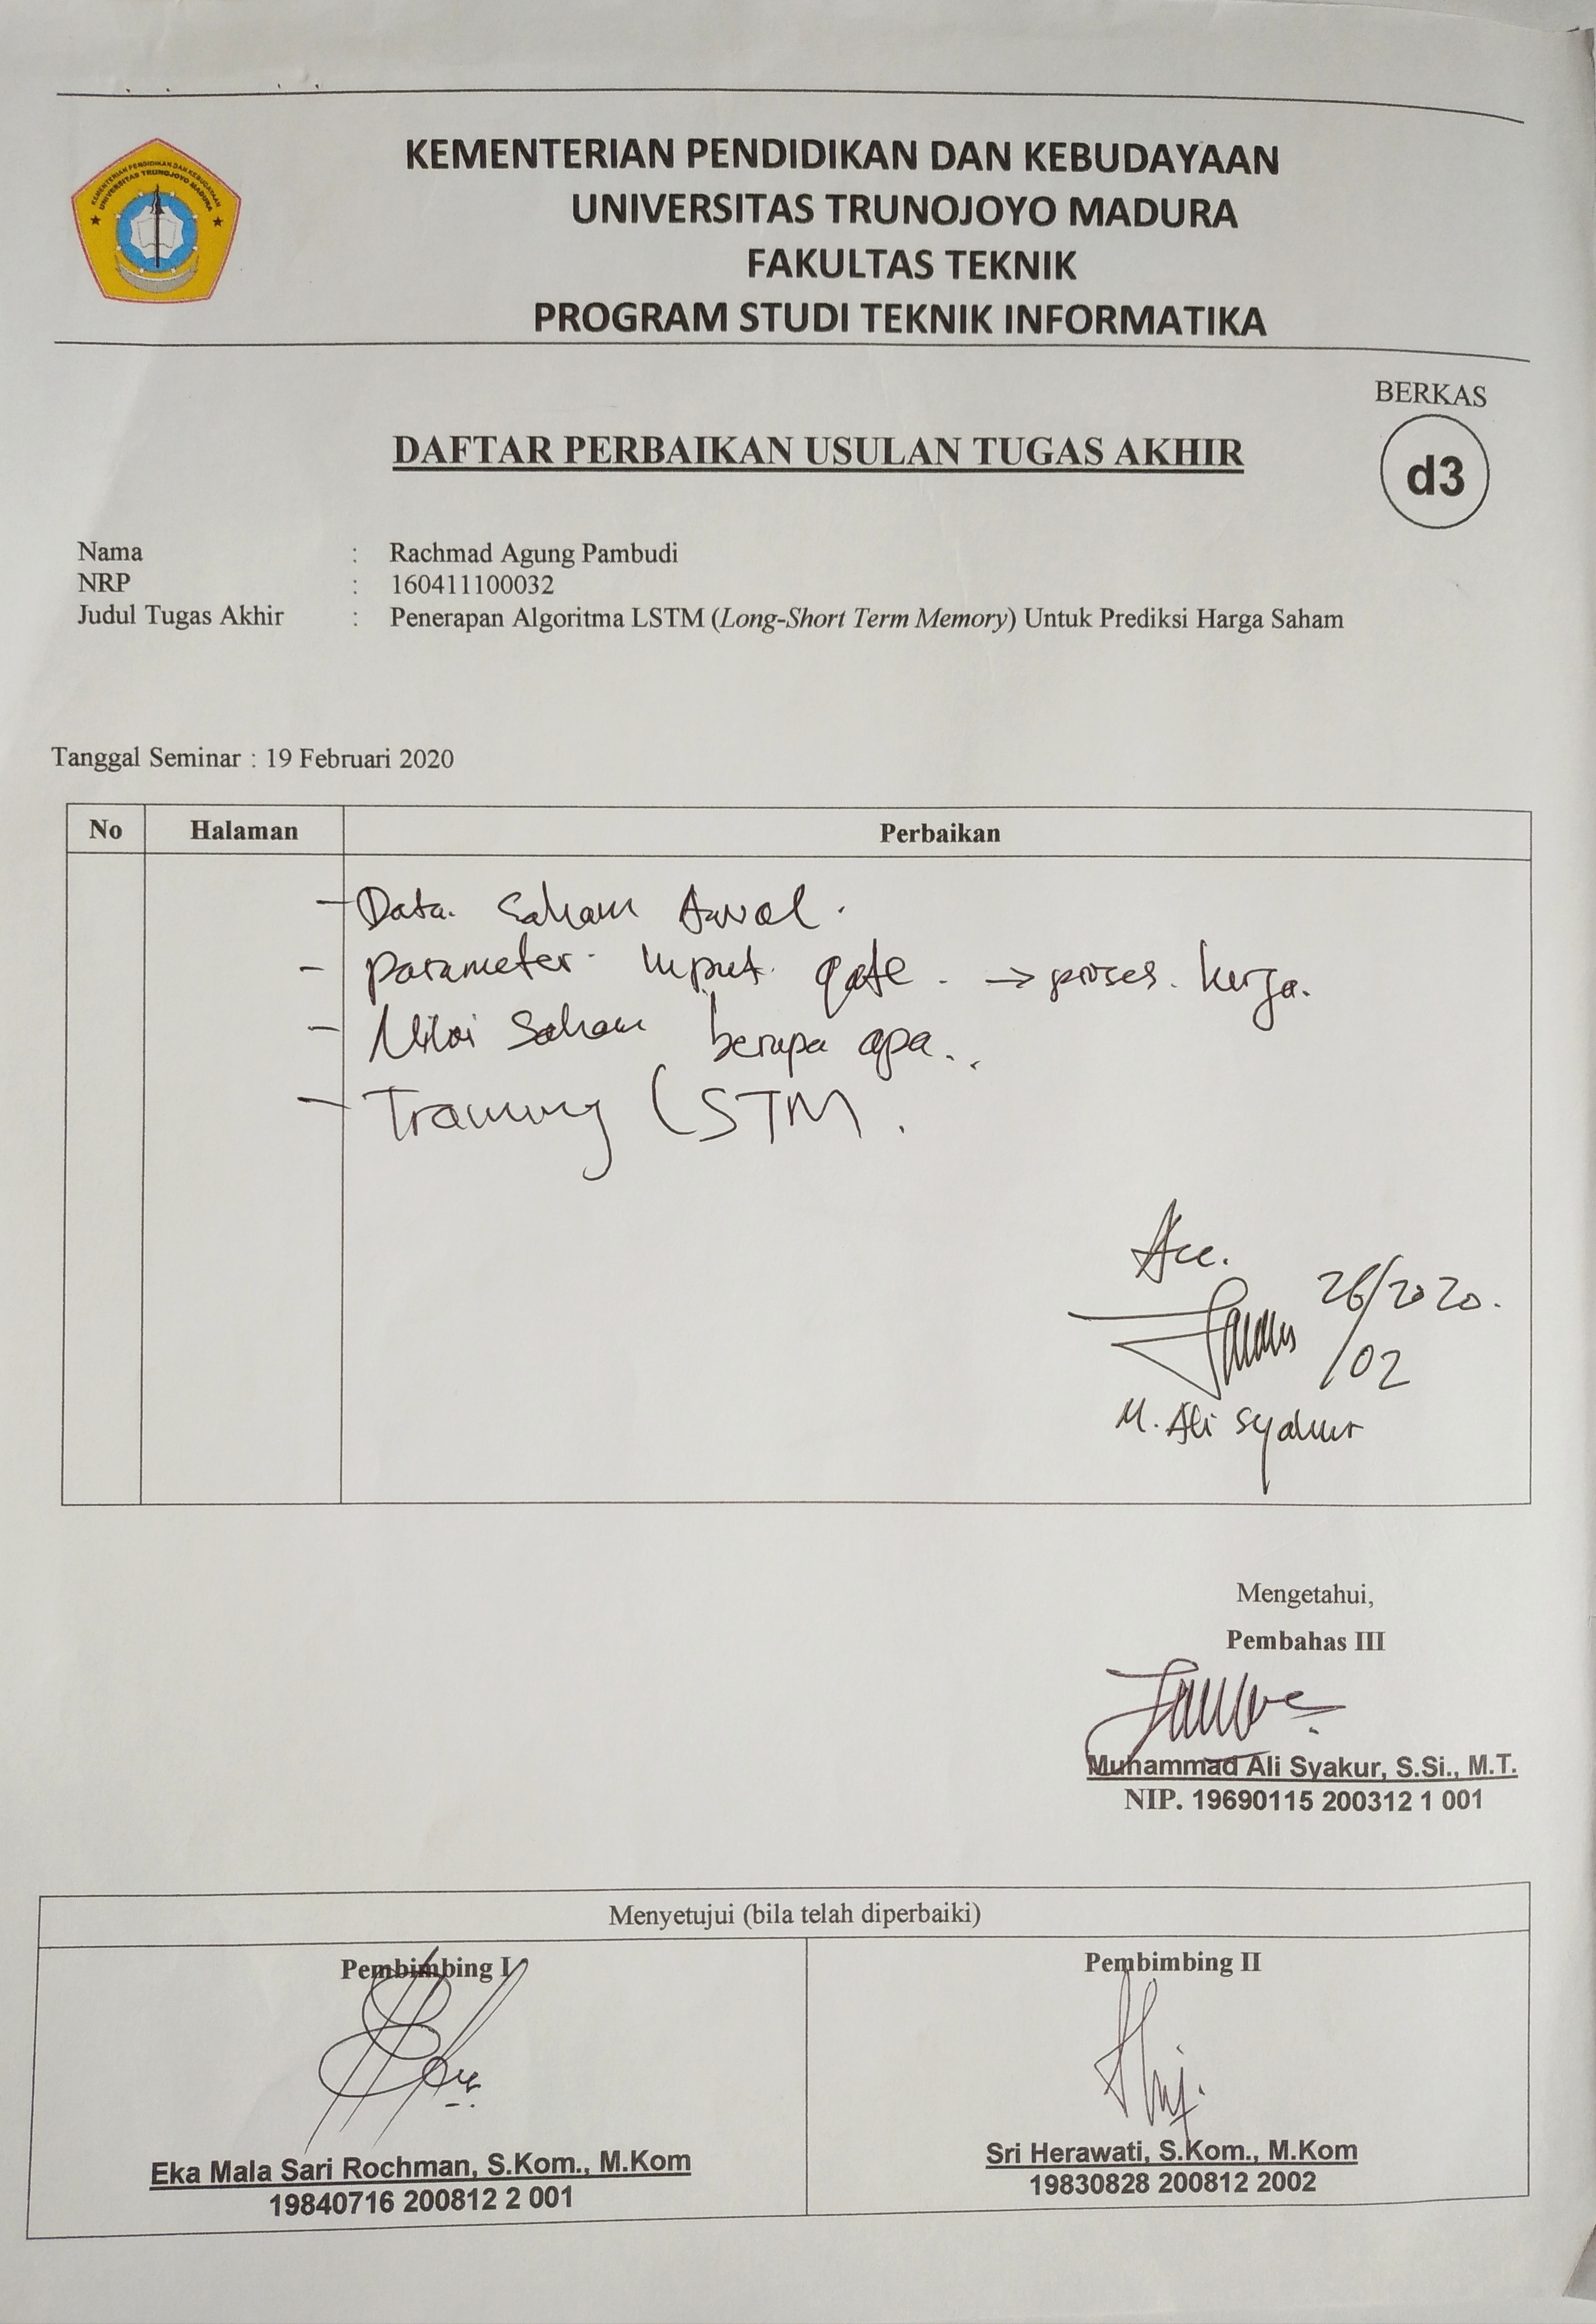 KEMENTERIAN PENDIDIKAN DAN KEBUDAYAAN
UNIVERSITAS TRUNOJOYO MADURA
KEMENTERIAN PENDIDIKAN DAN KEBUDAYAAN
UNIVERSITAS TRUNOJOYO MADURA
FAKULTAS TEKNIK
PROGRAM STUDI TEKNIK INFORMATIKA
BERKAS
d3
DAFTAR PERBAIKAN USULAN TUGAS AKHIR
Nama : Rachmad Agung Pambudi
NRP : 160411100032
Judul Tugas Akhir : Penerapan Algoritma LSTM (Long-Short Term Memory) Untuk Prediksi Harga Saham
Tanggal Seminar : 19 Februari 2020
No Halaman Perbaikan
- Data. Saham Awal.
- parameter. Input. gate. → proses. kerja.
- Nilai Saham berupa apa..
- Training LSTM.
Acc.
26/2020.
/02
M. Ali Syakur
Mengetahui,
Pembahas III
Muhammad Ali Syakur, S.Si., M.T.
NIP. 19690115 200312 1 001
Menyetujui (bila telah diperbaiki)
Pembimbing I
Eka Mala Sari Rochman, S.Kom., M.Kom
19840716 200812 2 001
Pembimbing II
Sri Herawati, S.Kom., M.Kom
19830828 200812 2002